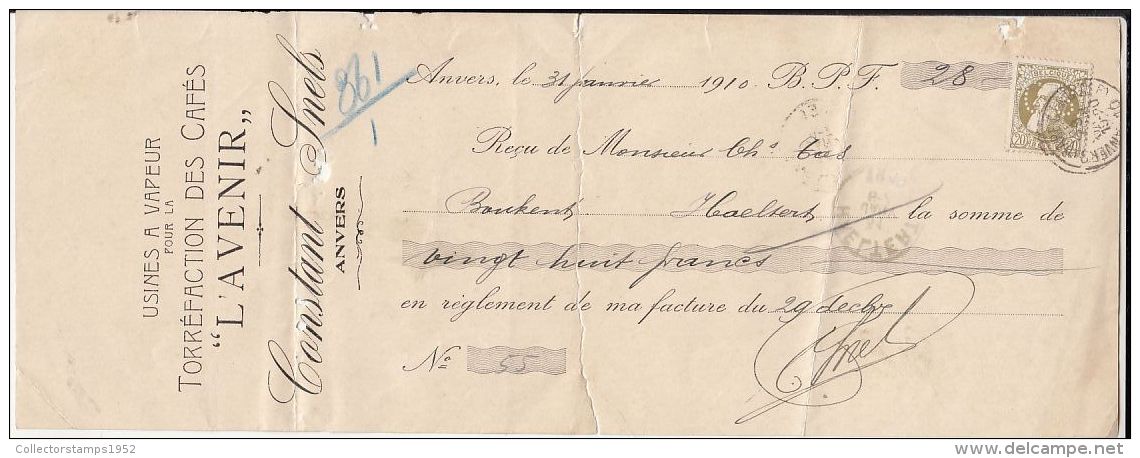 USINES A VAPEUR
POUR LA
TORRÉFACTION DES CAFÉS
“L'AVENIR„
Constant Snels
ANVERS
861
1
Anvers, le 31 janvier 1910 B. P. F. 28
Reçu de Monsieur Chs. Cas
Haeltert la somme de
vingt huit francs
en règlement de ma facture du 29 decbre
Nº 55
Snels
BELGIQUE
ANVERS
HAELTERT
Collectorstamps1952
delcampe.net